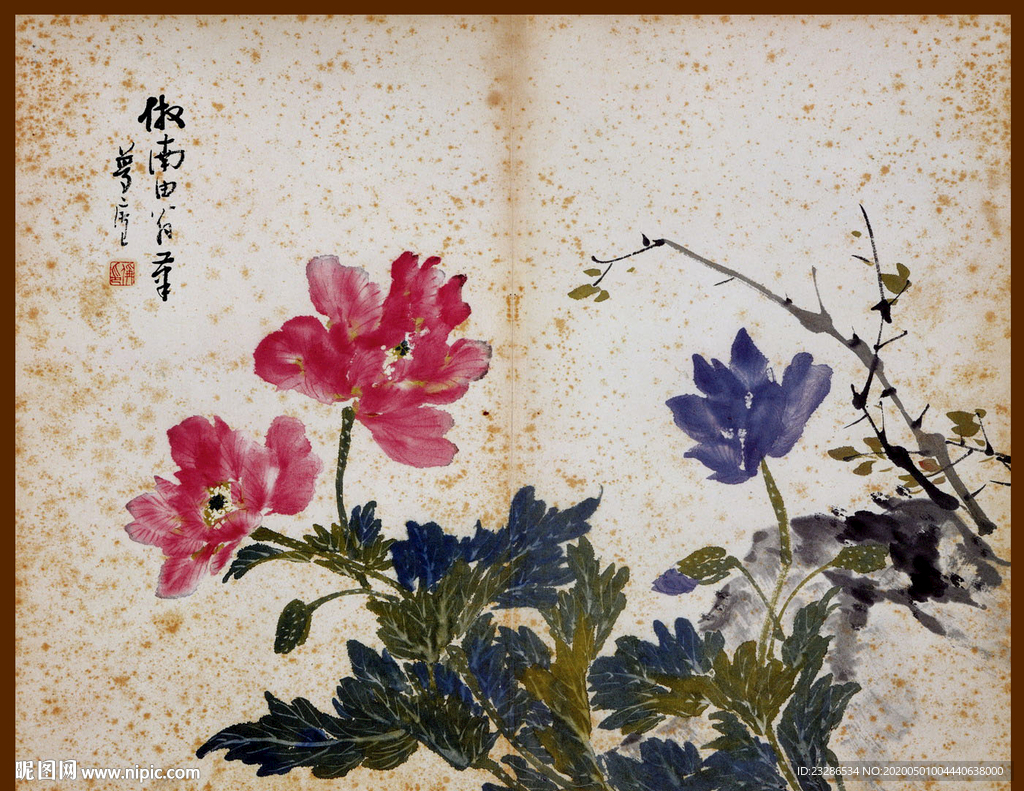 倣南田翁筆
夢
昵图网 www.nipic.com
ID:23286534 NO:20200501004440638000